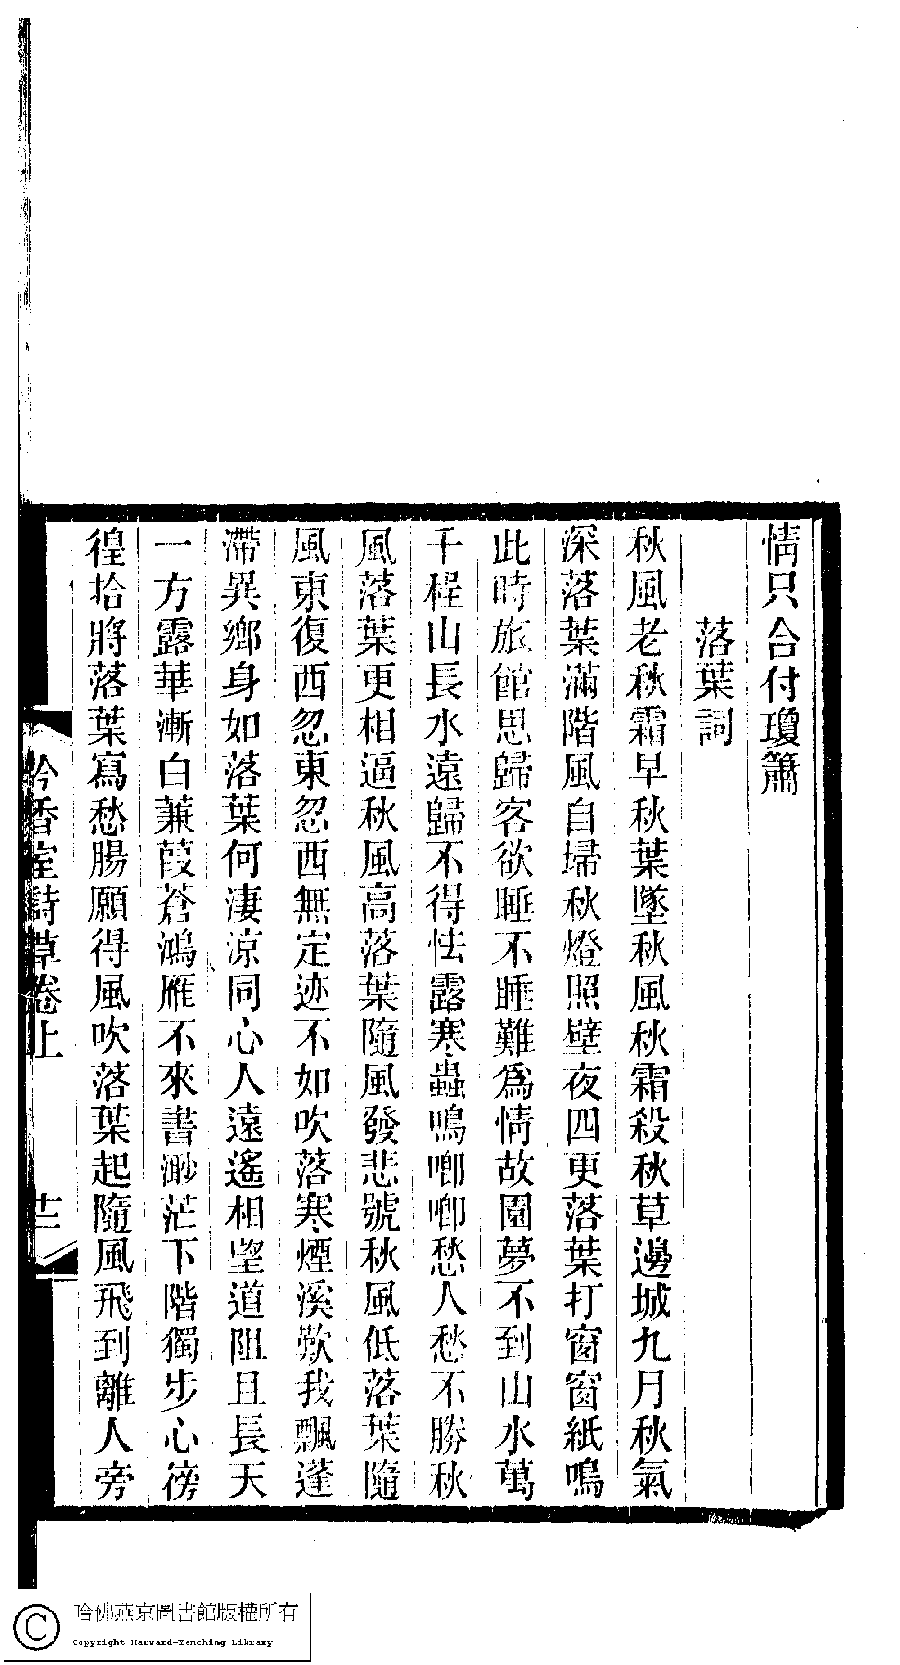 情只合付瓊簫
落葉詞
秋風老秋霜早秋葉墜秋風秋霜殺秋草邊城九月秋氣
深落葉滿階風自埽秋燈照壁夜四更落葉打窗窗紙鳴
此時旅館思歸客欲睡不睡難為情故園夢不到山水萬
千程山長水遠歸不得怯露寒蟲鳴唧唧愁人愁不勝秋
風落葉更相逼秋風高落葉隨風發悲號秋風低落葉隨
風東復西忽東忽西無定迹不如吹落寒煙溪歎我飄蓬
滯異鄉身如落葉何淒涼同心人遠遙相望道阻且長天
一方露華漸白蒹葭蒼鴻雁不來書渺茫下階獨步心徬
徨拾將落葉寫愁腸願得風吹落葉起隨風飛到離人旁
吟香室詩草卷上
十二
哈佛燕京圖書館版權所有
Copyright Harvard-Yenching Library